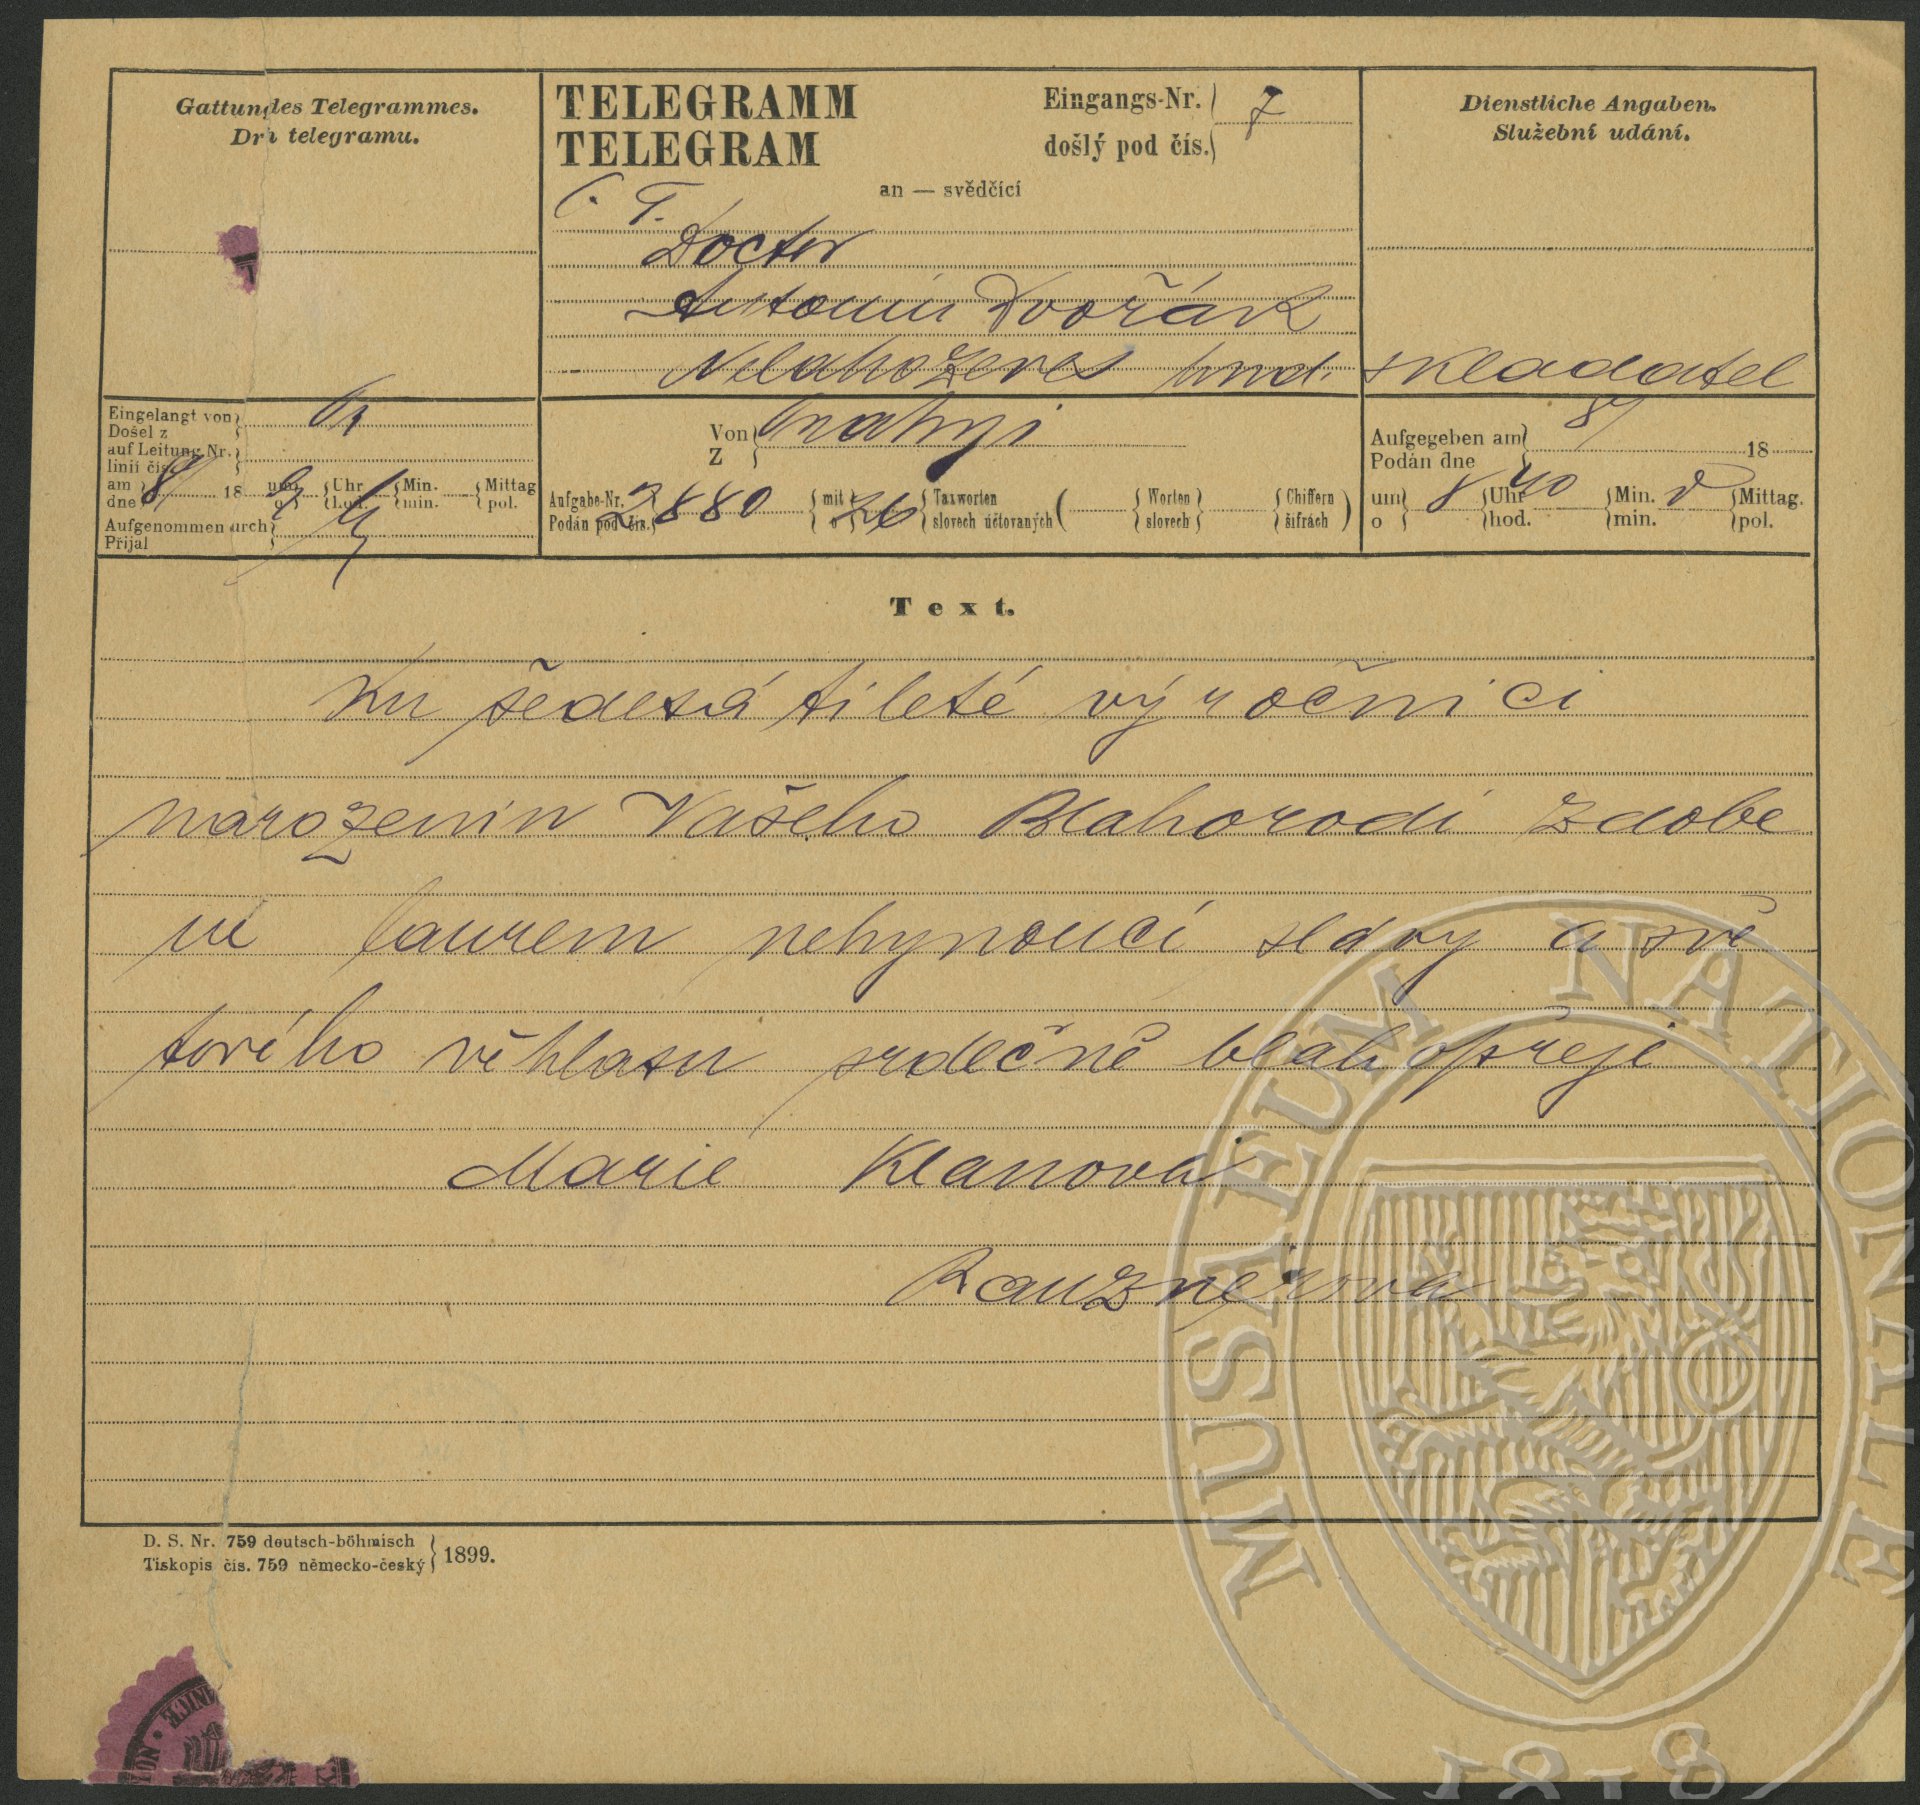 Gattun des Telegrammes.
Dr telegramu.
TELEGRAMM
TELEGRAM
Eingangs-Nr.
došlý pod čís.
7
Dienstliche Angaben.
Služební udání.
an — svědčící
Doctor
Antonín Dvořák
Nelahozeves hud. skladatel
Eingelangt von
Došel z
auf Leitung Nr.
linii čís.
am
dne
8/
18
um
o
Uhr
hod.
Min.
min.
Mittag
pol.
Aufgenommen durch
Přijal
Von
Z
Prahy
Aufgabe-Nr.
Podán pod čís.
2880
mit
o
26
Taxworten
slovech účtovaných
Worten
slovech
Chiffern
šifrách
Aufgegeben am
Podán dne
8/
18
um
o
8
Uhr
hod.
40
Min.
min.
Mittag.
pol.
Text.
Ku šedesátileté výročnici
narozenin Vašeho Blahorodí zdobe
né laurem nehynoucí slávy a svě
tového věhlasu srdečně blahopřeje
Marie Klanova
Rauznerova
D. S. Nr. 759 deutsch-böhmisch
Tiskopis čís. 759 německo-český
1899.
MUSAEUM NATIONALE
1818